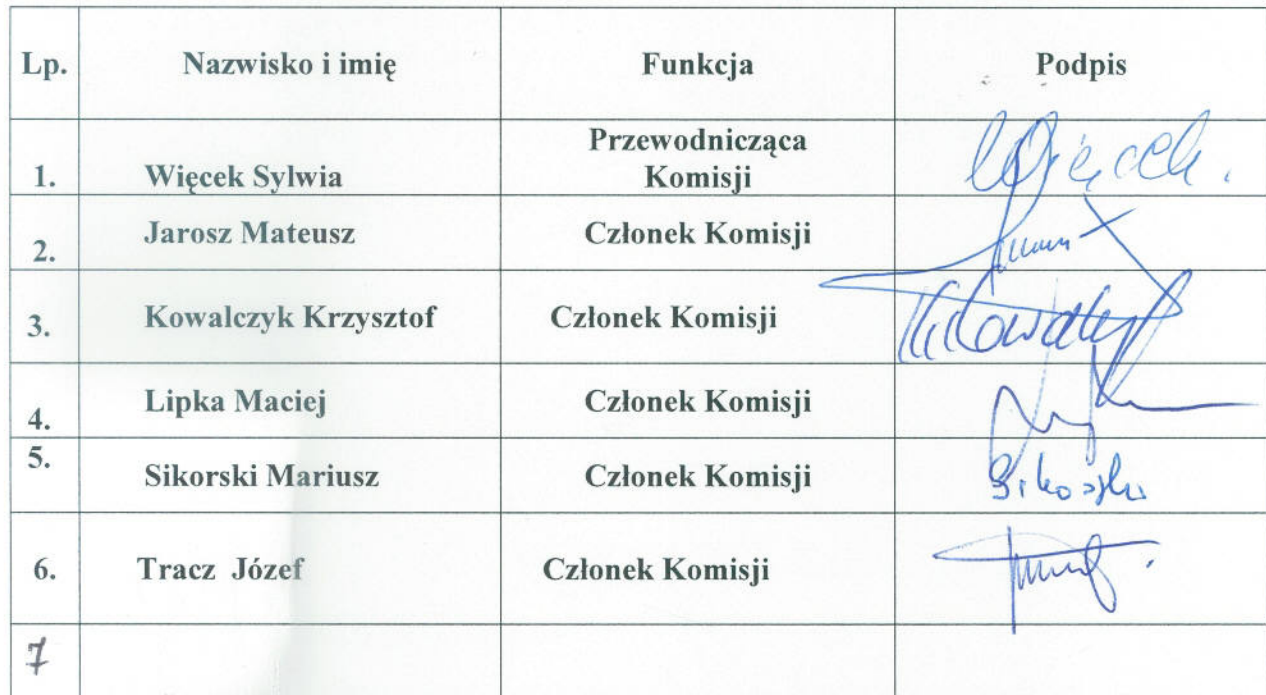 Lp. Nazwisko i imię Funkcja Podpis
Przewodnicząca
1. Więcek Sylwia Komisji Więcek.
2. Jarosz Mateusz Członek Komisji
3. Kowalczyk Krzysztof Członek Komisji
4. Lipka Maciej Członek Komisji
5. Sikorski Mariusz Członek Komisji Sikorski
6. Tracz Józef Członek Komisji
7